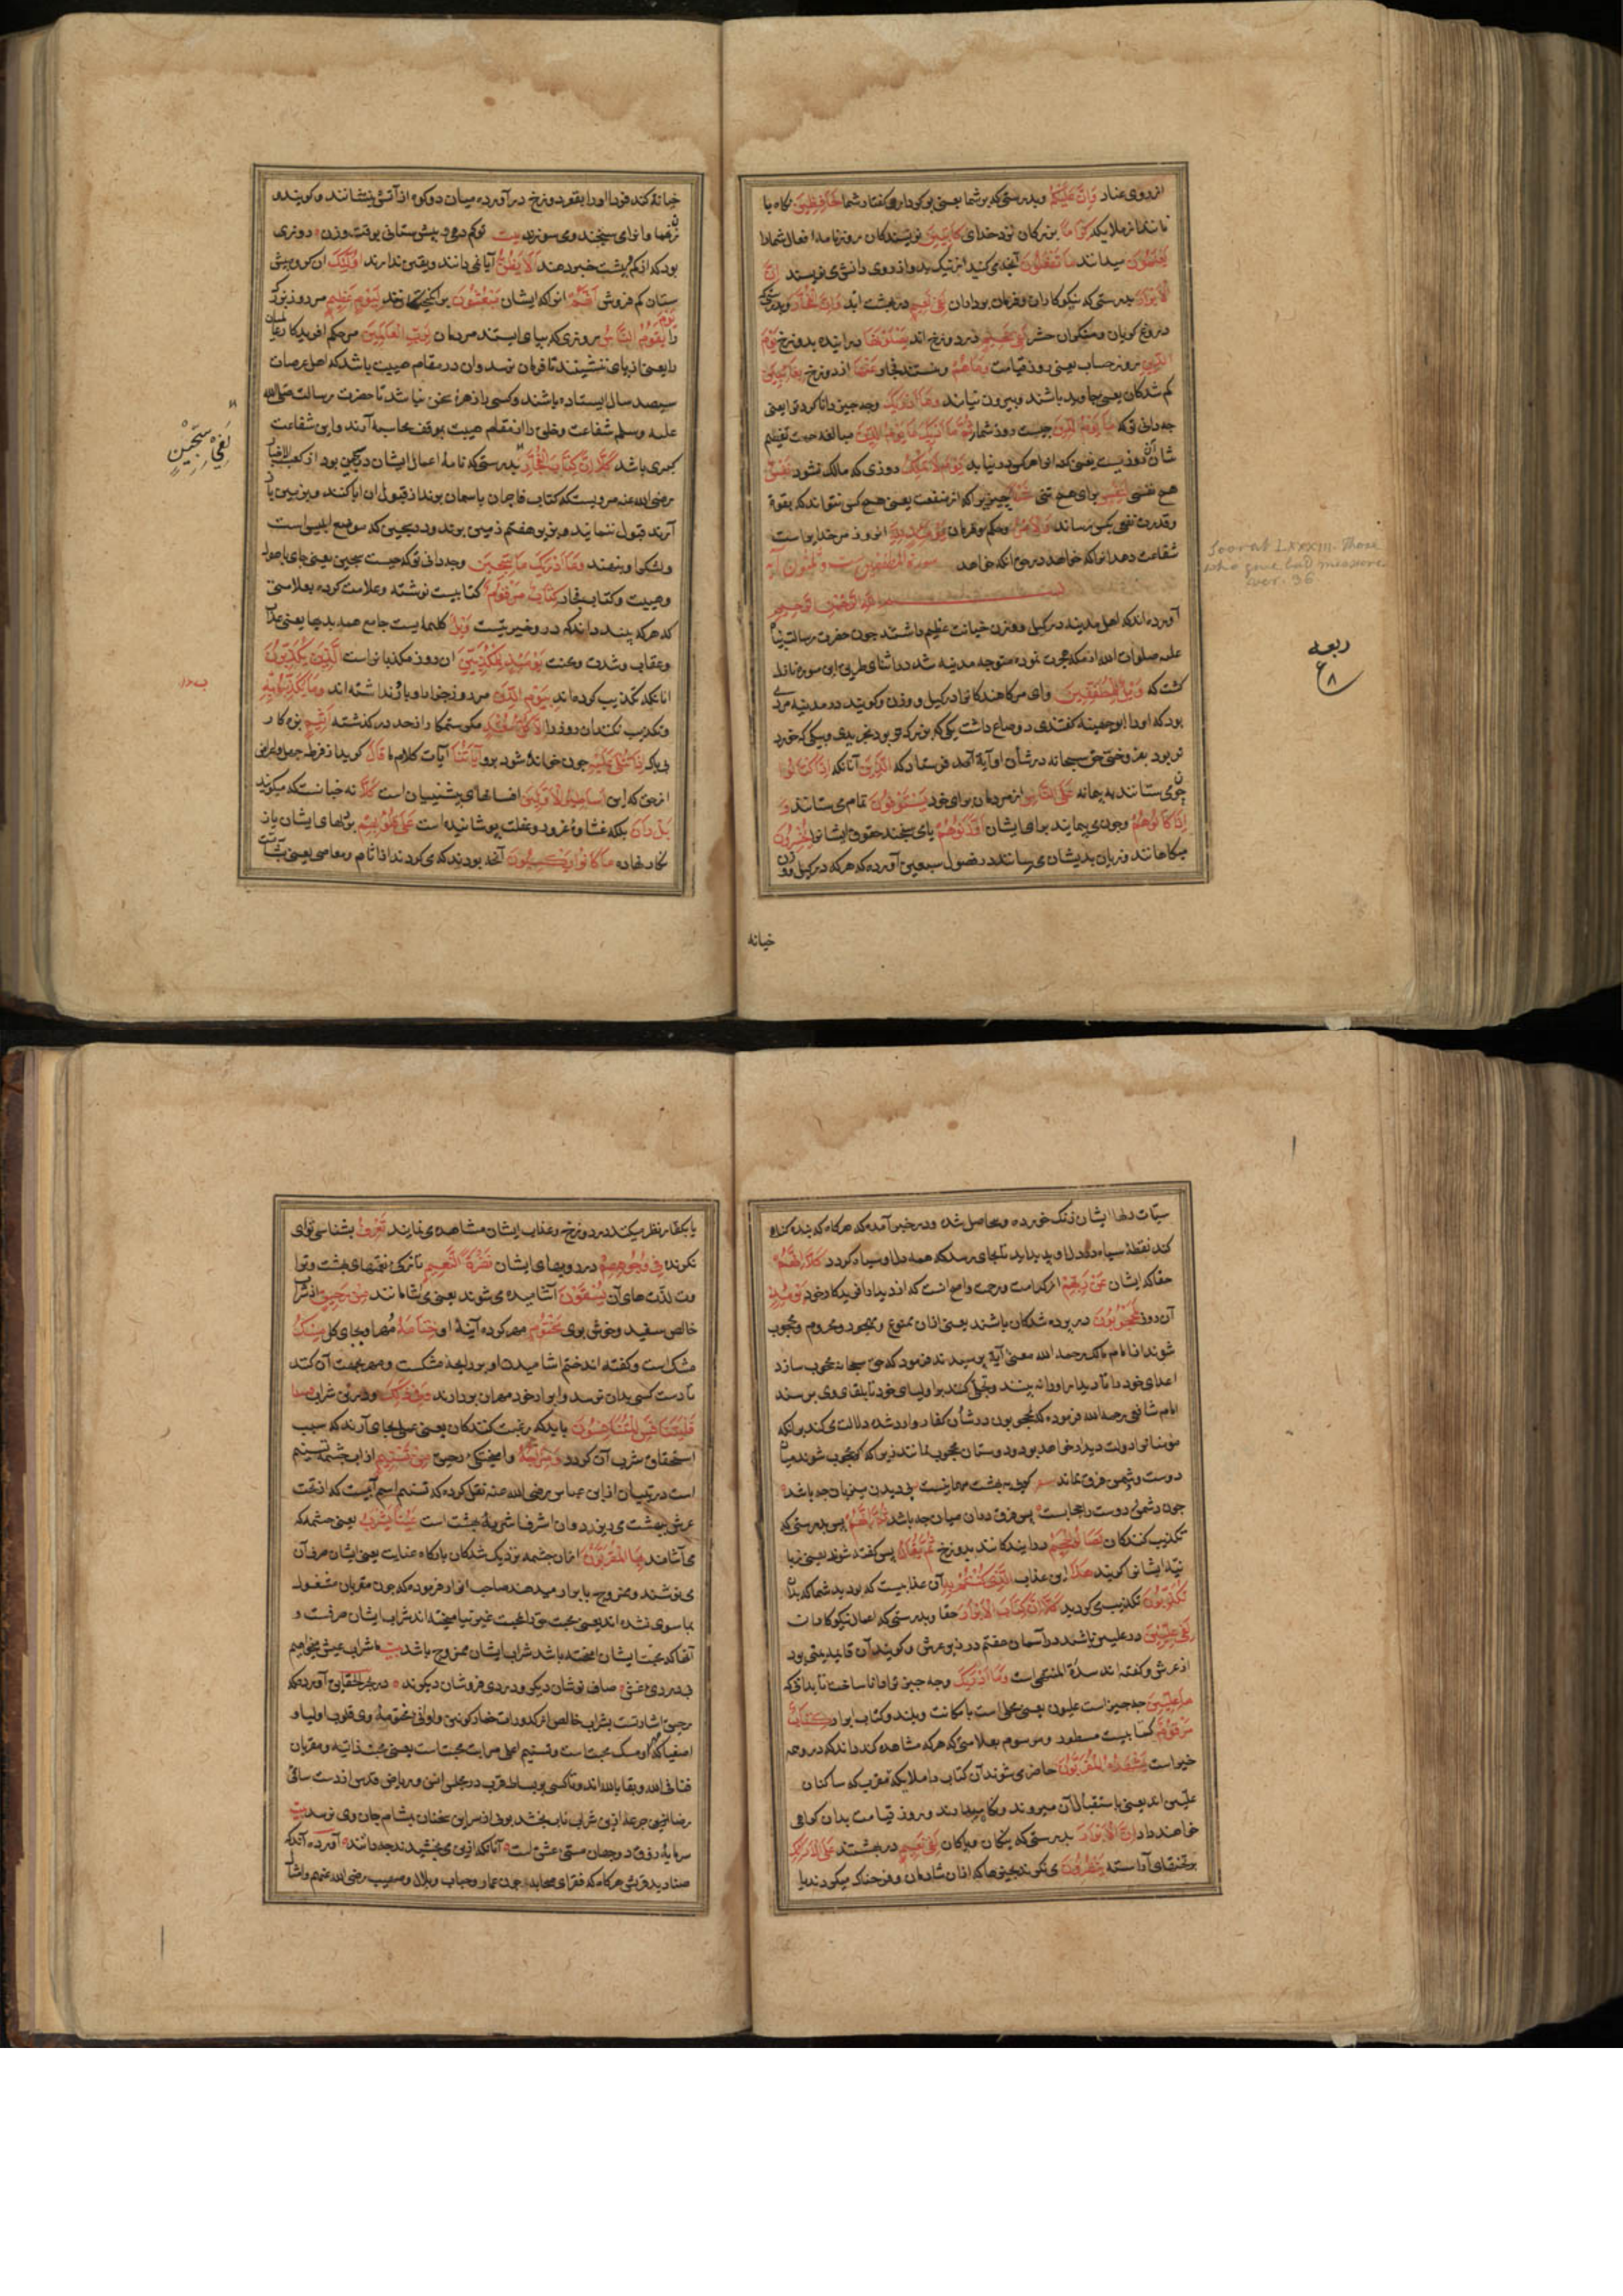 از روی عناد وَإِنَّ عَلَيْكُمْ وبدرستی که بر شما یعنی بر کردار و گفتار شما لَحَافِظِينَ نگاه با
نانند از ملایکه كِرَامًا بزرگان نزد خدای كَاتِبِينَ نویسندگان روزنامه افعال شمارا
يَعْلَمُونَ میدانند مَا تَفْعَلُونَ آنچه می کنید از نیک و بد و از روی دانش می نویسند إِنَّ
الْأَبْرَارَ بدرستی که نیکوکاران و فرمان برداران لَفِي نَعِيمٍ در بهشت اند وَإِنَّ الْفُجَّارَ وبدرستی که
دروغ گویان و منکران حشر لَفِي جَحِيمٍ در دوزخ اند يَصْلَوْنَهَا در آیند بدوزخ يَوْمَ
الدِّينِ روز حساب یعنی روز قیامت وَمَا هُمْ و نیستند فجار عَنْهَا از دوزخ بِغَائِبِينَ
گم شدگان یعنی جاوید باشند و بیرون نیایند وَمَا أَدْرَاكَ وچه چیز دانا کرد ترا یعنی
چه دانی تو که مَا يَوْمُ الدِّينِ چیست روز شمار ثُمَّ مَا أَدْرَاكَ مَا يَوْمُ الدِّينِ مبالغه جهت تفخیم
شان آن روز است يَوْمَ لَا تَمْلِكُ روزی که مالک نشود نَفْسٌ
هیچ نفسی لِنَفْسٍ برای هیچ تنی شَيْئًا چیزیرا که از منفعت یعنی هیچ کس نتواند که بقوة
و قدرت نفعی بکس رساند وَالْأَمْرُ وحکم و فرمان يَوْمَئِذٍ لِلَّهِ آنروز مر خدایراست
شفاعت دهد انرا که خواهد در حق آنکه خواهد سورة المطففین ست و ثلثون آیة
بسم الله الرحمن الرحیم
آورده اند که اهل مدینه در کیل و وزن خیانت عظیم داشتند چون حضرت رسالت پناه
علیه صلوات الله از مکه هجرت نموده متوجه مدینه شد در اثنای طریق این سوره نازل
گشت که وَيْلٌ لِلْمُطَفِّفِينَ وای مر کاهندکانرا در کیل و وزن و گویند در مدینه مردی
بود که او را ابوجهینه گفتندی دو صاع داشت یکی که بزرکتر بود بخریدی و بیکی که خورد
تر بود بفروختی حق سبحانه در شأن او آیة آمد فرستاد که الَّذِينَ آنانکه إِذَا اكْتَالُوا
چون می ستانند به پیمانه عَلَى النَّاسِ از مردمان برای خود يَسْتَوْفُونَ تمام می ستانند وَ
إِذَا كَالُوهُمْ وچون می پیمایند برای ایشان أَوْ وَزَنُوهُمْ یا می سنجند حقوق ایشانرا يُخْسِرُونَ
میکاهانند و زیان بدیشان می رسانند در فصول سبعین آورده که هر که در کیل و وزن
خیانه
Soorat LXXXIII. Those
who give bad measure
ver. 36
ربعه
ع
۸
خیانة کند فردا او را بقعر دوزخ در آورده میان دو کوه از آتش بنشانند و گویند و
زنهما وانرا می سنجند و می سوزند بیت تو کم دهی و بیش ستانی بوقت وزن روزی
بود که از کم و بیشت خبر دهند أَلَا يَظُنُّ آیا نمی دانند و یقین ندارند أُولَئِكَ ان گروه بیش
ستان کم فروش أَنَّهُمْ انرا که ایشان مَبْعُوثُونَ برانگیختگانند لِيَوْمٍ عَظِيمٍ مر روز بزرگ
را يَوْمَ يَقُومُ النَّاسُ روزی که بپای ایستند مردمان لِرَبِّ الْعَالَمِينَ مر حکم آفریدکار عالمیان
را یعنی از پای ننشینند تا فرمان نرسد و ان در مقام هیبت باشد که اهل عرصات
سیصد سال ایستاده باشند و کسی را زهرهٔ سخن نباشد تا حضرت رسالت صلی الله
علیه وسلم شفاعت و خلق را از مقام هیبت بموقف محاسبه آرند و این شفاعت
کبری باشد كَلَّا إِنَّ كِتَابَ الْفُجَّارِ بدرستی که نامهٔ اعمال ایشان در سجین بود از کعب الاحبار
لَفِي سِجِّينٍ
رضی الله عنه مرویست که کتاب فاجران باسمان برند از قبول ان ابا کنند و بزمین باز
آرند قبول ننمایند و بزیر هفتم زمین برند و در سجین که موضع ابلیس است
ولشکر او بنهند وَمَا أَدْرَاكَ مَا سِجِّينٌ وچه دانی تو که چیست سجین یعنی جای با هول
وهیبت و کتاب فجار كِتَابٌ مَرْقُومٌ کتابیست نوشته و علامت کرده بعلامتی
که هر که بیند داند که در و خیر نیست وَيْلٌ کلمهایست جامع همه بدیها یعنی عذاب
وعقاب وشدت ومحنت يَوْمَئِذٍ لِلْمُكَذِّبِينَ ان روز مکذبانراست الَّذِينَ يُكَذِّبُونَ
انانکه تکذیب کرده اند بِيَوْمِ الدِّينِ مر روز جزا را و باور نداشته اند وَمَا يُكَذِّبُ بِهِ
وتکذیب نکند ان روز را إِلَّا كُلُّ مُعْتَدٍ مگر ستمکار از حد در گذشته أَثِيمٍ بزه کار
بی باک إِذَا تُتْلَى عَلَيْهِ چون خوانده شود برو آيَاتُنَا آیات کلام ما قَالَ گوید از فرط جهل و اعراض
از حق که این أَسَاطِيرُ الْأَوَّلِينَ افسانهای پیشینیان است كَلَّا نه چنانست که میگویند
بَلْ رَانَ بلکه غشاوهٔ غرور و غفلت پوشانیده است عَلَى قُلُوبِهِمْ بر دلهای ایشان باز
نکار نهاده مَا كَانُوا يَكْسِبُونَ آنچه بودند که می کردند از آثام و معاصی یعنی شآمت
سیّئات دلها ایشان زنک خورده و حاصل شده و در خبر آمده که هر گاه که بنده گناه
کند نقطهٔ سیاه در دل او پدید آید تا بجای رسد که همه دل او سیاه گردد كَلَّا إِنَّهُمْ
حقا که ایشان عَنْ رَبِّهِمْ از کرامت و رحمت و اصح آنست که از دیدار آفریدکار خود يَوْمَئِذٍ
آن روز لَمَحْجُوبُونَ در پرده شدکان باشند یعنی ازان ممنوع و مهجور و محروم و محجوب
شوند از امام مالک رحمه الله معنی آیة پرسیدند فرمود که حق سبحانه محجوب سازد
اعدای خود را تا دیدار او را نه بینند و تجلی کند بر اولیای خود تا بلقای وی برسند
امام شافعی رحمه الله فرموده که محجوبون در شأن کفار وارد شده دلالت می کند بر آنکه
مؤمنانرا دولت دیدار خواهد بود و دوستان محجوب نمانند زیرا که اگر محجوب شوند میان
دوست و دشمن فرق نماند
چون دشمن و دوست را حجابست پس فرق دران میان چه باشد ثُمَّ إِنَّهُمْ پس بدرستی که
تکذیب کنندکان لَصَالُو الْجَحِيمِ در آیندکانند بدوزخ ثُمَّ يُقَالُ پس گفته شوند یعنی زبا
نیه ایشانرا گویند هَذَا این عذاب الَّذِي كُنْتُمْ بِهِ آن عذابیست که بودید شما که بدان
تُكَذِّبُونَ تکذیب می کردید كَلَّا إِنَّ كِتَابَ الْأَبْرَارِ حقا و بدرستی که اعمال نیکوکاران
لَفِي عِلِّيِّينَ در علیین باشند در آسمان هفتم در زیر عرش و گویند آن قایمه یمنی بود
از عرش و گفته اند سدرة المنتهی است وَمَا أَدْرَاكَ وچه چیز ترا دانا ساخت تا بدانی که
مَا عِلِّيُّونَ چه چیز است علیون یعنی محلی است با مکانت و بلند و کتاب ابرار كِتَابٌ
مَرْقُومٌ کتابیست مسطور و مرسوم بعلامتی که هر که مشاهده کند داند که در و همه
خیر است يَشْهَدُهُ الْمُقَرَّبُونَ حاضر می شوند آن کتاب را ملایکه مقرب که ساکنان
علیین اند یعنی باستقبال آن میروند و نگاه میدارند و روز قیامت بدان گواهی
خواهند داد إِنَّ الْأَبْرَارَ بدرستی که نیکان و پاکان لَفِي نَعِيمٍ در بهشتند عَلَى الْأَرَائِكِ
بر تختهای آراسته يَنْظُرُونَ می نگرند بچیزهاکه ازان شادمان و فرحناک میگردند یا
یا بکفار نظر میکنند در دوزخ و عذاب ایشان مشاهده می نمایند تَعْرِفُ بشناسی تو ای
نگرنده فِي وُجُوهِهِمْ در رویهای ایشان نَضْرَةَ النَّعِيمِ تازگی نعمتهای بهشت و ترا
وت لذتهای آن يُسْقَوْنَ آشامیده می شوند یعنی می آشامانند مِنْ رَحِيقٍ از شراب
خالص سفید و خوش بوی مَخْتُومٍ مهر کرده آنیهٔ او خِتَامُهُ مهر او بجای گل مِسْكٌ
مشک است و گفته اند ختم آشامیدن او بر رایحهٔ مشکست و مهر بجهت آن کند
تا دست کسی بدان نرسد و ابرار خود مهر آن بردارند وَفِي ذَلِكَ و در این شراب
فَلْيَتَنَافَسِ الْمُتَنَافِسُونَ باید که رغبت کنند راغبت کنندکان یعنی عملی بجای آرند که سبب
استحقاق شرب آن گردد وَمِزَاجُهُ و آمیختگی رحیق مِنْ تَسْنِيمٍ از آب چشمهٔ تسنیم
است در تبیان از ابن عباس رضی الله عنه نقل کرده که تسنیم اسم آبیست که از تحت
عرش ببهشت می ریزد و ان اشرف اشربهٔ بهشت است عَيْنًا يَشْرَبُ یعنی چشمه که
می آشامند بِهَا الْمُقَرَّبُونَ ازان چشمه نزدیک شدکان بارکاه عنایت یعنی ایشان صرف آن
می نوشند و ممزوج بابرار میدهند صاحب انوار فرموده که چون مقربان مشغول
بما سوی نشده اند یعنی محبت حق را بمحبت غیر نیامیخته اند شراب ایشان صرفست و
آنها که محبت ایشان آمیخته باشد شراب ایشان ممزوج باشد بیت ما شراب عیش میخواهیم
بی دردی غش صاف نوشان دیگر و دردی فروشان دیگرند در بحر الحقایق آورده که
رحیق اشارتست بشراب خالص از کدورات خمار کونین و اوانی مختومهٔ وی قلوب اولیا و
اصفیا که مهر او مسک محبتاست و تسنیم اعلی مراتب محبت است یعنی محبت ذاتیه و مقربان
فنا فی الله و بقا بالله اند و تا کسی بر بساط قرب در مجلس انس و ریاض قدس از دست ساقی
رضا ازین شراب ناب بخشد بوی از سر این سخنان بمشام جان وی نرسد بیت
سرمایهٔ ذوق دو جهان مستی عشق است آنانکه ازین می نچشیدند چه دانند آورده اند که
صنادید قریش هر گاه که فقرای صحابه چون عمار و خباب و بلال و صهیب رضی الله عنهم و امثال